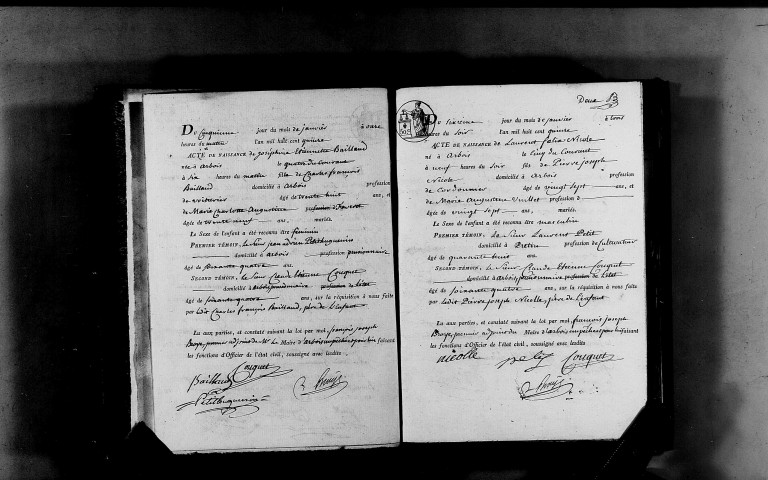 Du Cinquieme jour du mois de janvier à onze
heures du matin l'an mil huit cent quinze
ACTE DE NAISSANCE de Josephine Etiennette Baillaud
née à arbois le quatre du courant
à six heures du matin fille de Charles françois
Baillaud domicilié à arbois profession
de âgé de trente huit ans, et
de Marie Charlotte Augustine profession d
âgée de trente neuf ans, mariés.
Le Sexe de l'enfant a été reconnu être féminin
PREMIER TÉMOIN, le Sieur jean
domicilié à arbois profession pensionnaire
âgé de soixante quatre ans.
SECOND TÉMOIN, le Sieur Claude Etienne Couquet
domicilié à arbois pensionnaire profession de l'état
âgé de soixante quatre ans, sur la réquisition à nous faite
par ledit Charles françois Baillaud, père de l'enfant
Lu aux parties, et constaté suivant la loi par moi, françois joseph
premier adjoint de Mr Le Maire d'arbois faisant
les fonctions d'Officier de l'état civil, soussigné avec lesdits
Baillaud Couquet
Deux
Du sixieme jour du mois de janvier à trois
heures du soir l'an mil huit cent quinze
ACTE DE NAISSANCE de Laurent felix Nicole
né à arbois le cinq du Courant
à neuf heures du soir fils de Pierre joseph
Nicole domicilié à arbois profession
de Cordonnier âgé de vingt sept ans, et
de Marie Augustine profession d
âgée de vingt sept ans, mariés.
Le Sexe de l'enfant a été reconnu être masculin
PREMIER TÉMOIN, Le Sieur Laurent Petit
domicilié à Pretin profession de Cultivateur
âgé de quarante huit ans.
SECOND TÉMOIN, le Sieur Claude Etienne Couquet
domicilié à arbois pensionnaire profession de l'état
âgé de soixante quatre ans, sur la réquisition à nous faite
par ledit Pierre joseph Nicolle, père de l'enfant
Lu aux parties, et constaté suivant la loi par moi, francois joseph
premier adjoint du Maire d'arbois faisant
les fonctions d'Officier de l'état civil, soussigné avec lesdits
nicolle Couquet